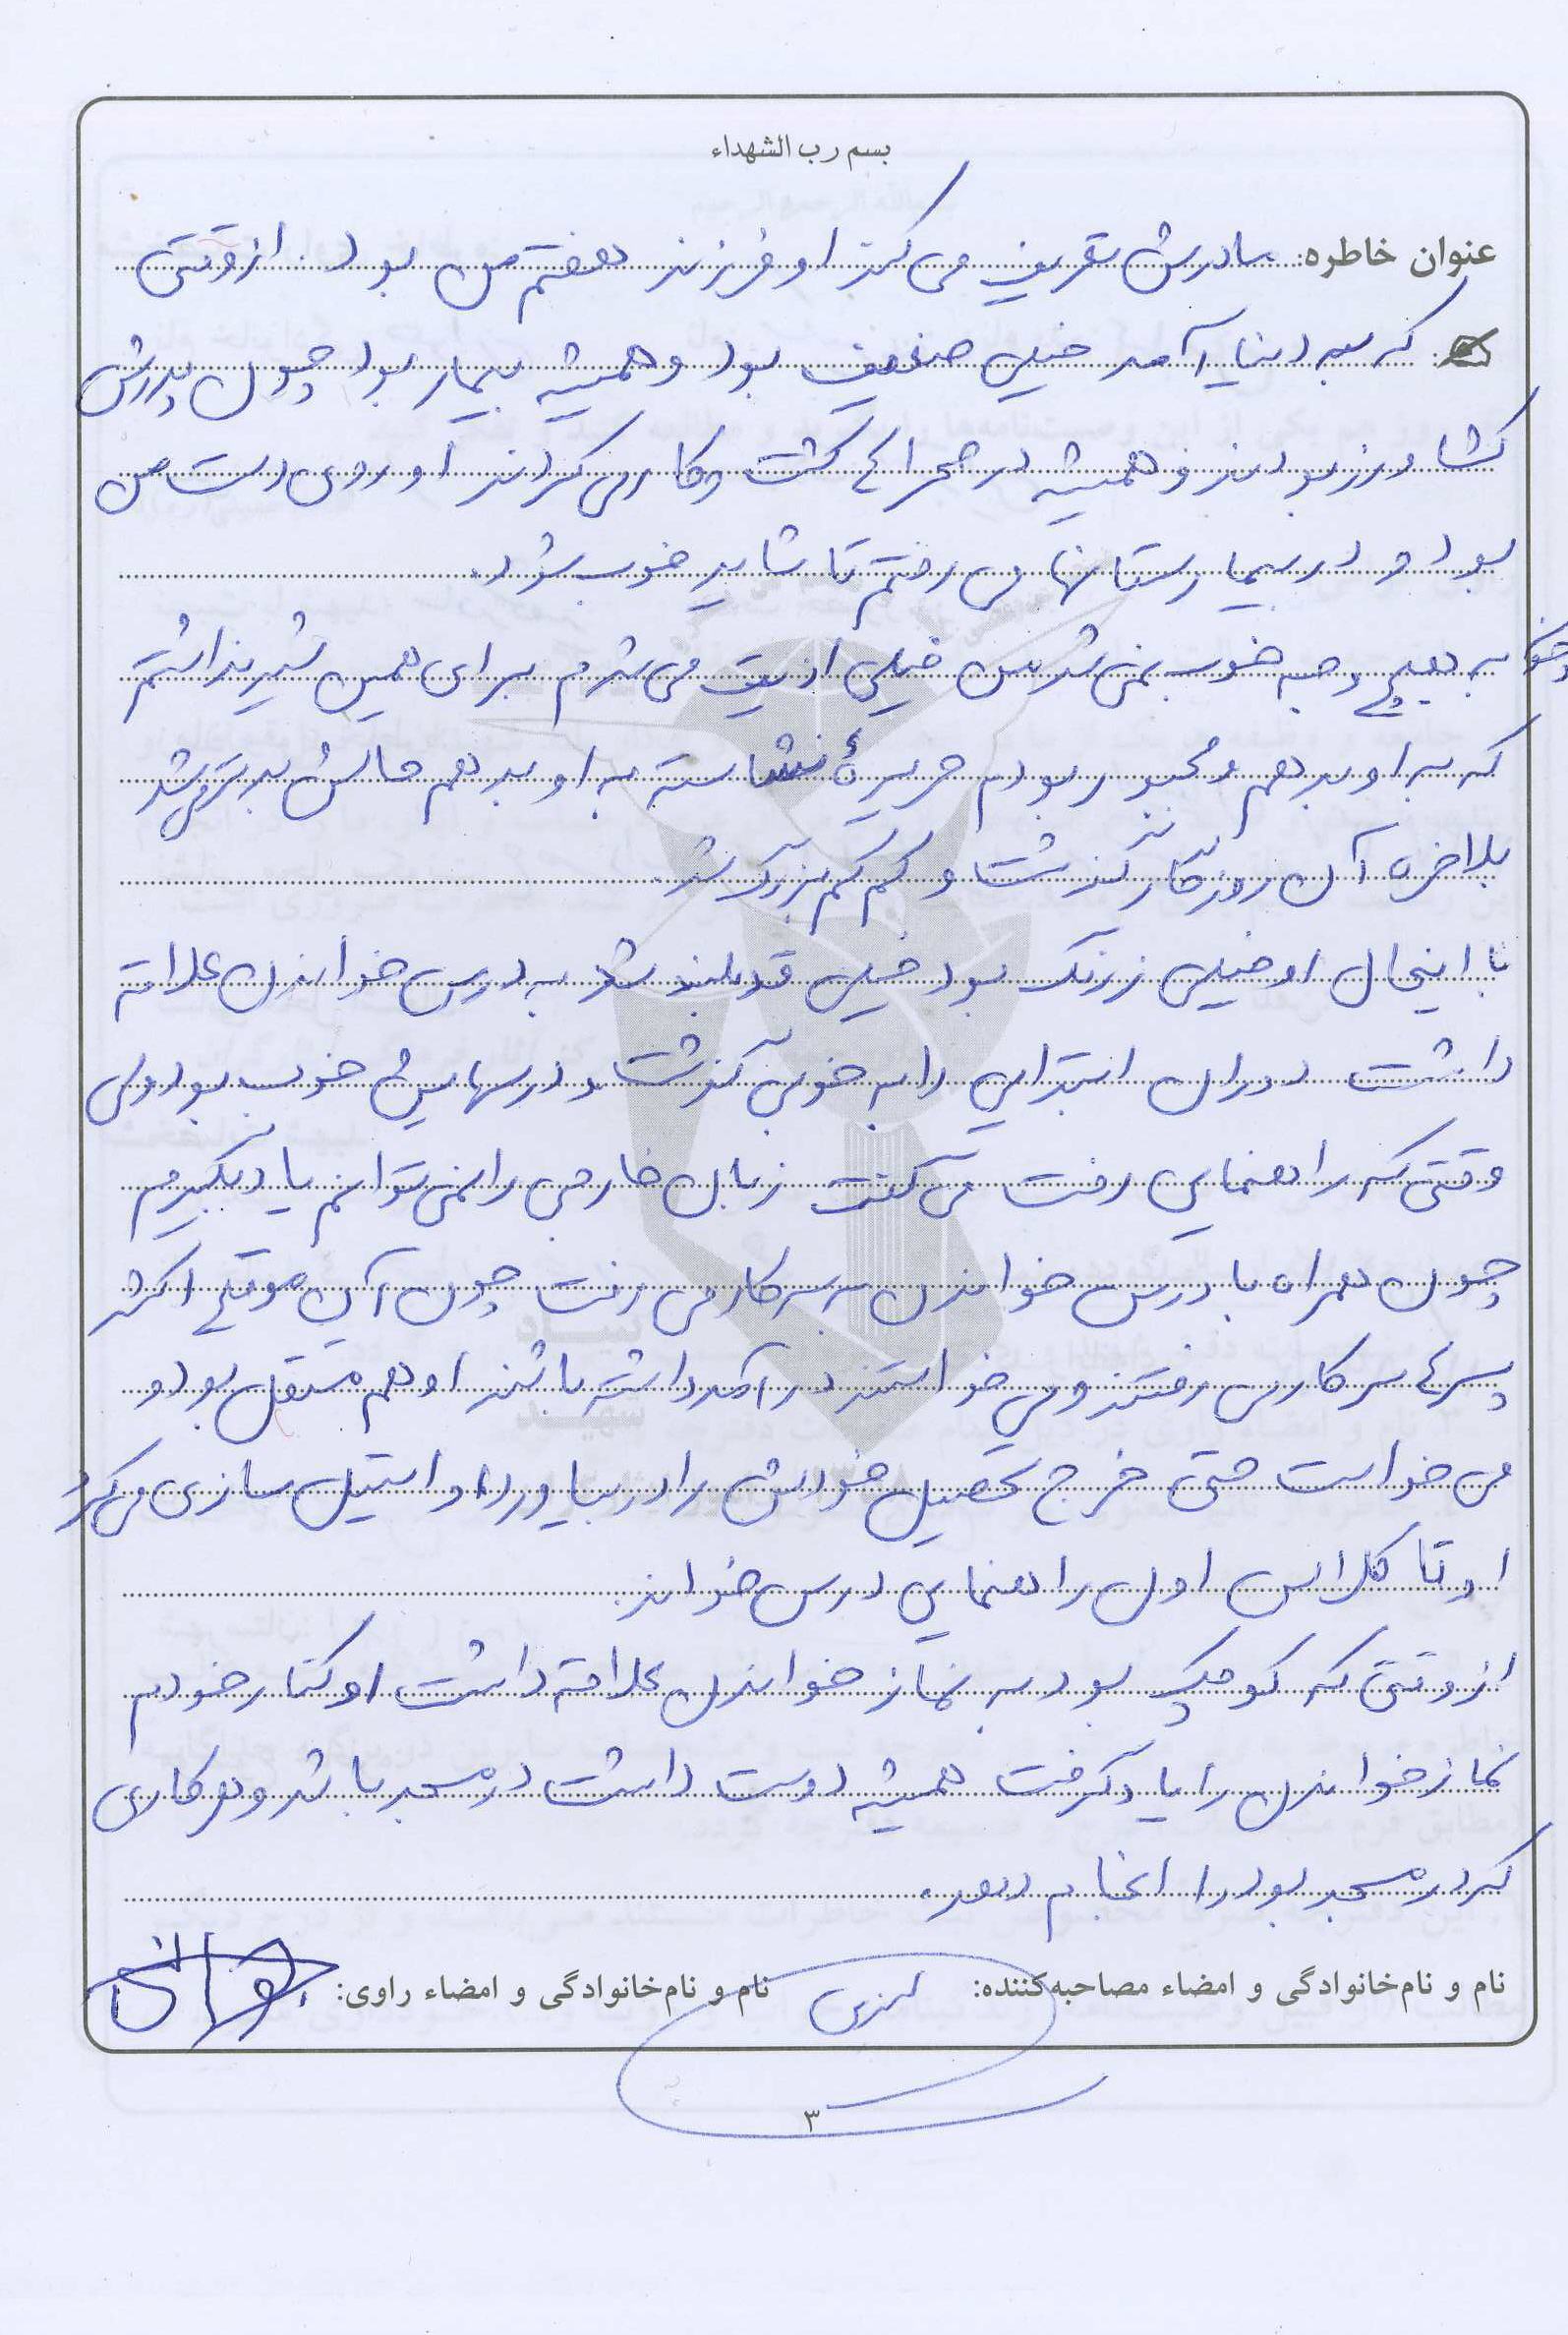 بسم رب الشهداء
عنوان خاطره: مادرش تعریف می کند او فرزند هفتم من بود. از وقتی
که به دنیا آمد خیلی ضعیف بود و همیشه بیمار بود چون پدرش
کشاورز بودند و همیشه در صحرا کشت و کار می کردند او روی دست من
بود و در بیمارستانها می رفتم تا شاید خوب شود.
به هیچ وجه خوب نمی شد من خیلی اذیت می شدم برای همین شیر نداشتم
که به او بدهم و مجبور بودم حریرۀ نشاسته به او بدهم حالش بدتر می شد
بلاخره آن روزگار گذشت و کم کم بزرگ شد.
با اینحال او خیلی زرنگ بود خیلی قد بلند شد به درس خواندن علاقه
داشت دوران ابتدایی را به خوبی گذشت و درسهایش خوب بود ولی
وقتی که راهنمایی رفت می گفت زبان خارجی را نمی توانم یاد بگیرم
چون همراه با درس خواندن سر کار می رفت چون آن موقع اکثر
پسرها سر کار می رفتند و می خواستند درآمد داشته باشند او هم مستقل بود و
می خواست حتی خرج تحصیل خودش را در بیاورد او استیل سازی می کرد
او تا کلاس اول راهنمایی درس خواند.
از وقتی که کوچک بود به نماز خواندن علاقه داشت او کنار خودم
نماز خواندن را یاد گرفت همیشه دوست داشت در مسجد باشد و هر کاری
که در مسجد بود را انجام دهد.
نام و نام‌خانوادگی و امضاء مصاحبه‌کننده: نام و نام‌خانوادگی و امضاء راوی:
۳